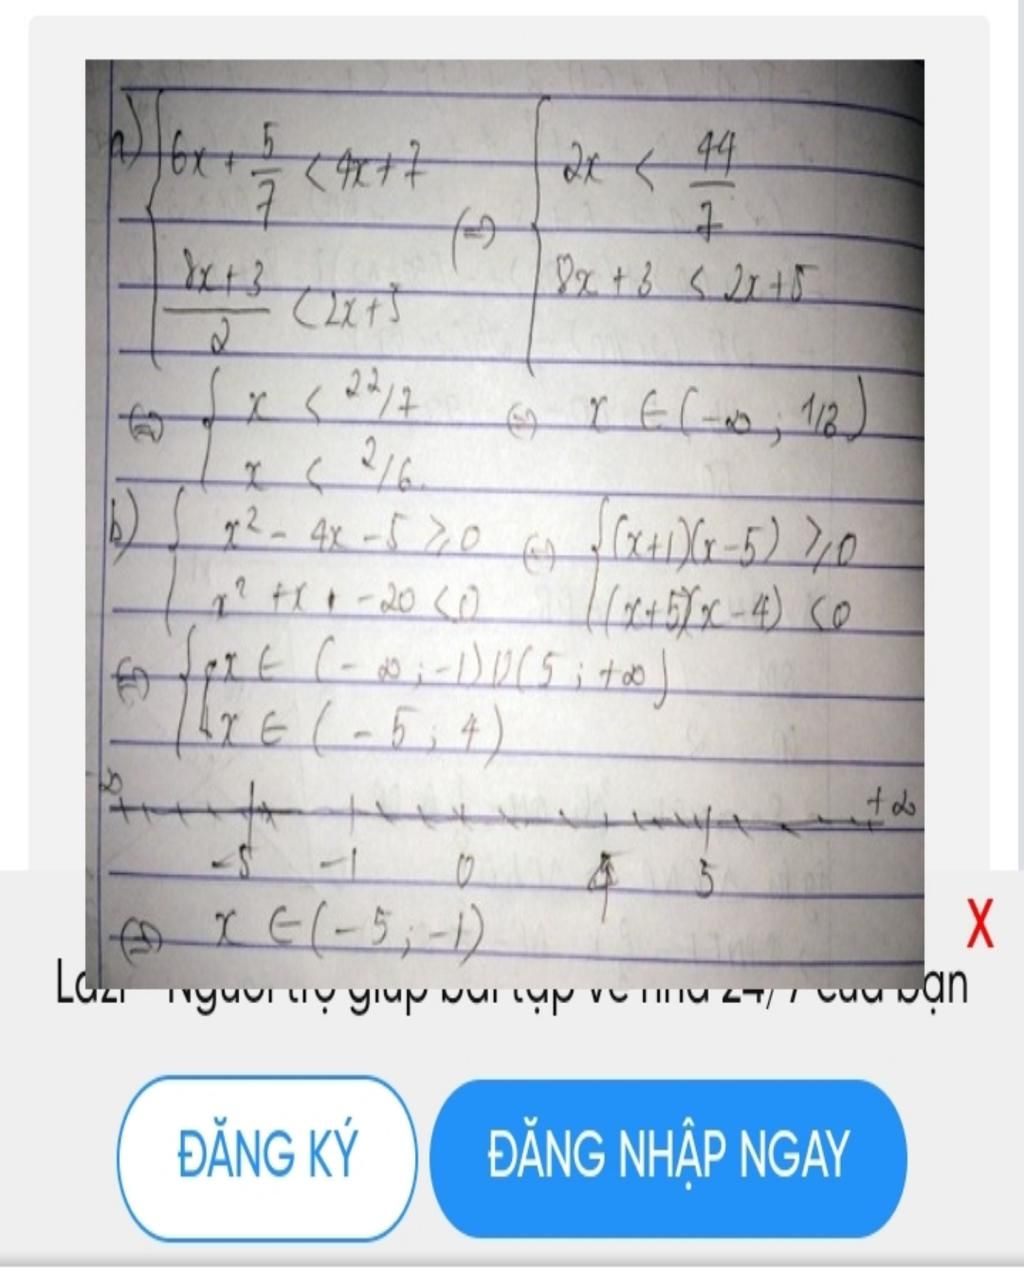 a) { 6x + 5/7 < 4x + 7 (=) { 2x < 44/7
(8x + 3)/2 < 2x + 5 8x + 3 < 2x + 5
(=) { x < 22/7 (=) x ∈ (-∞ ; 1/3)
x < 2/6.
b) { x² - 4x - 5 ≥ 0 (=) { (x+1)(x-5) ≥ 0
x² + x - 20 < 0 (x+5)(x-4) < 0
(=) { x ∈ (-∞ ; -1) U (5 ; +∞)
x ∈ (-5 ; 4)
-∞ +∞
-5 -1 0 4 5
(=) x ∈ (-5 ; -1)
X
Lazi - Người trợ giúp bài tập về nhà 24/7 của bạn
ĐĂNG KÝ
ĐĂNG NHẬP NGAY